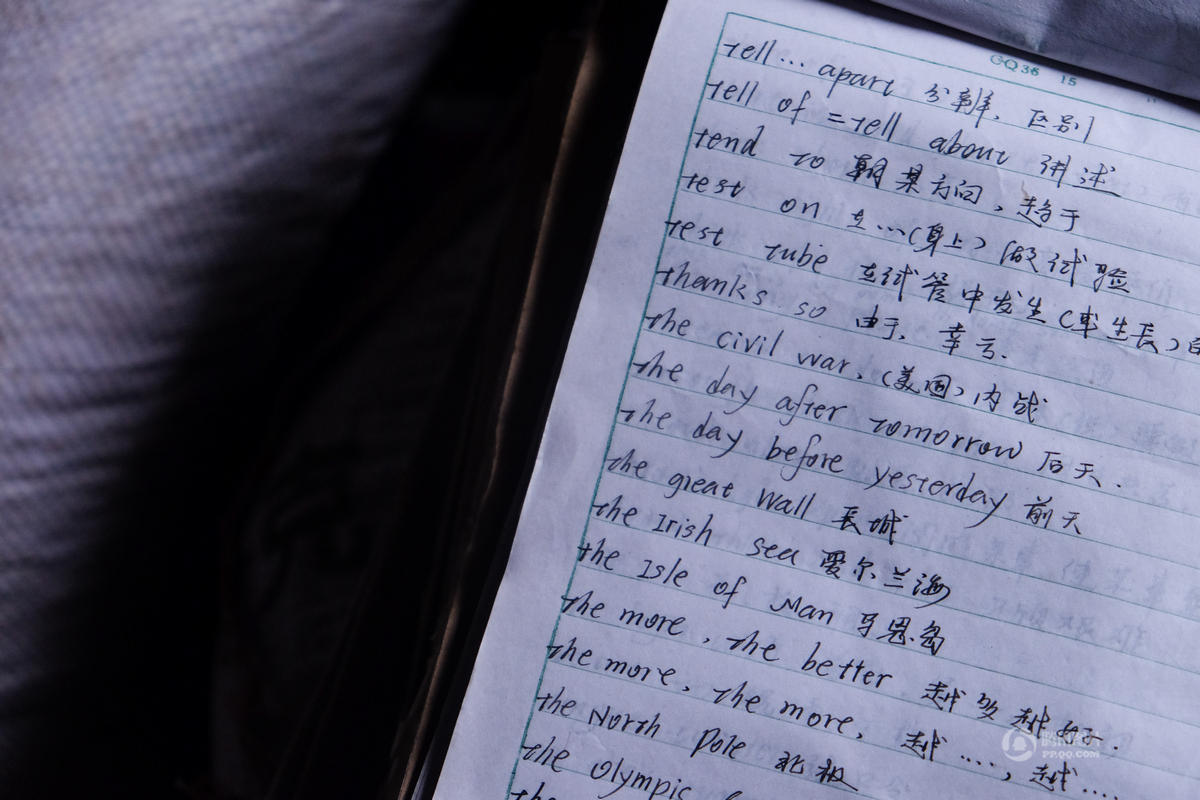 GQ36 15
tell... apart 分辨, 区别
tell of = tell about 讲述
tend to 朝某方向, 趋于
test on 在...(身上)做试验
test tube 在试管中发生(或生長)
thanks so 由于, 幸亏.
the civil war, (美国)内战
the day after tomorrow 后天.
the day before yesterday 前天
the great Wall 長城
the Irish sea 爱尔兰海
the Isle of Man 马恩岛
the more, the better 越多越好.
the more, the more, 越....., 越.....
the North Pole 北极
the Olympic
the
PP.QQ.COM